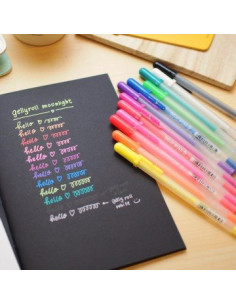 gelly roll moonlight
hello ♡
hello ♡
hello ♡
hello ♡
hello ♡
hello ♡
hello ♡
hello ♡
hello ♡
hello ♡ ← gelly roll
white